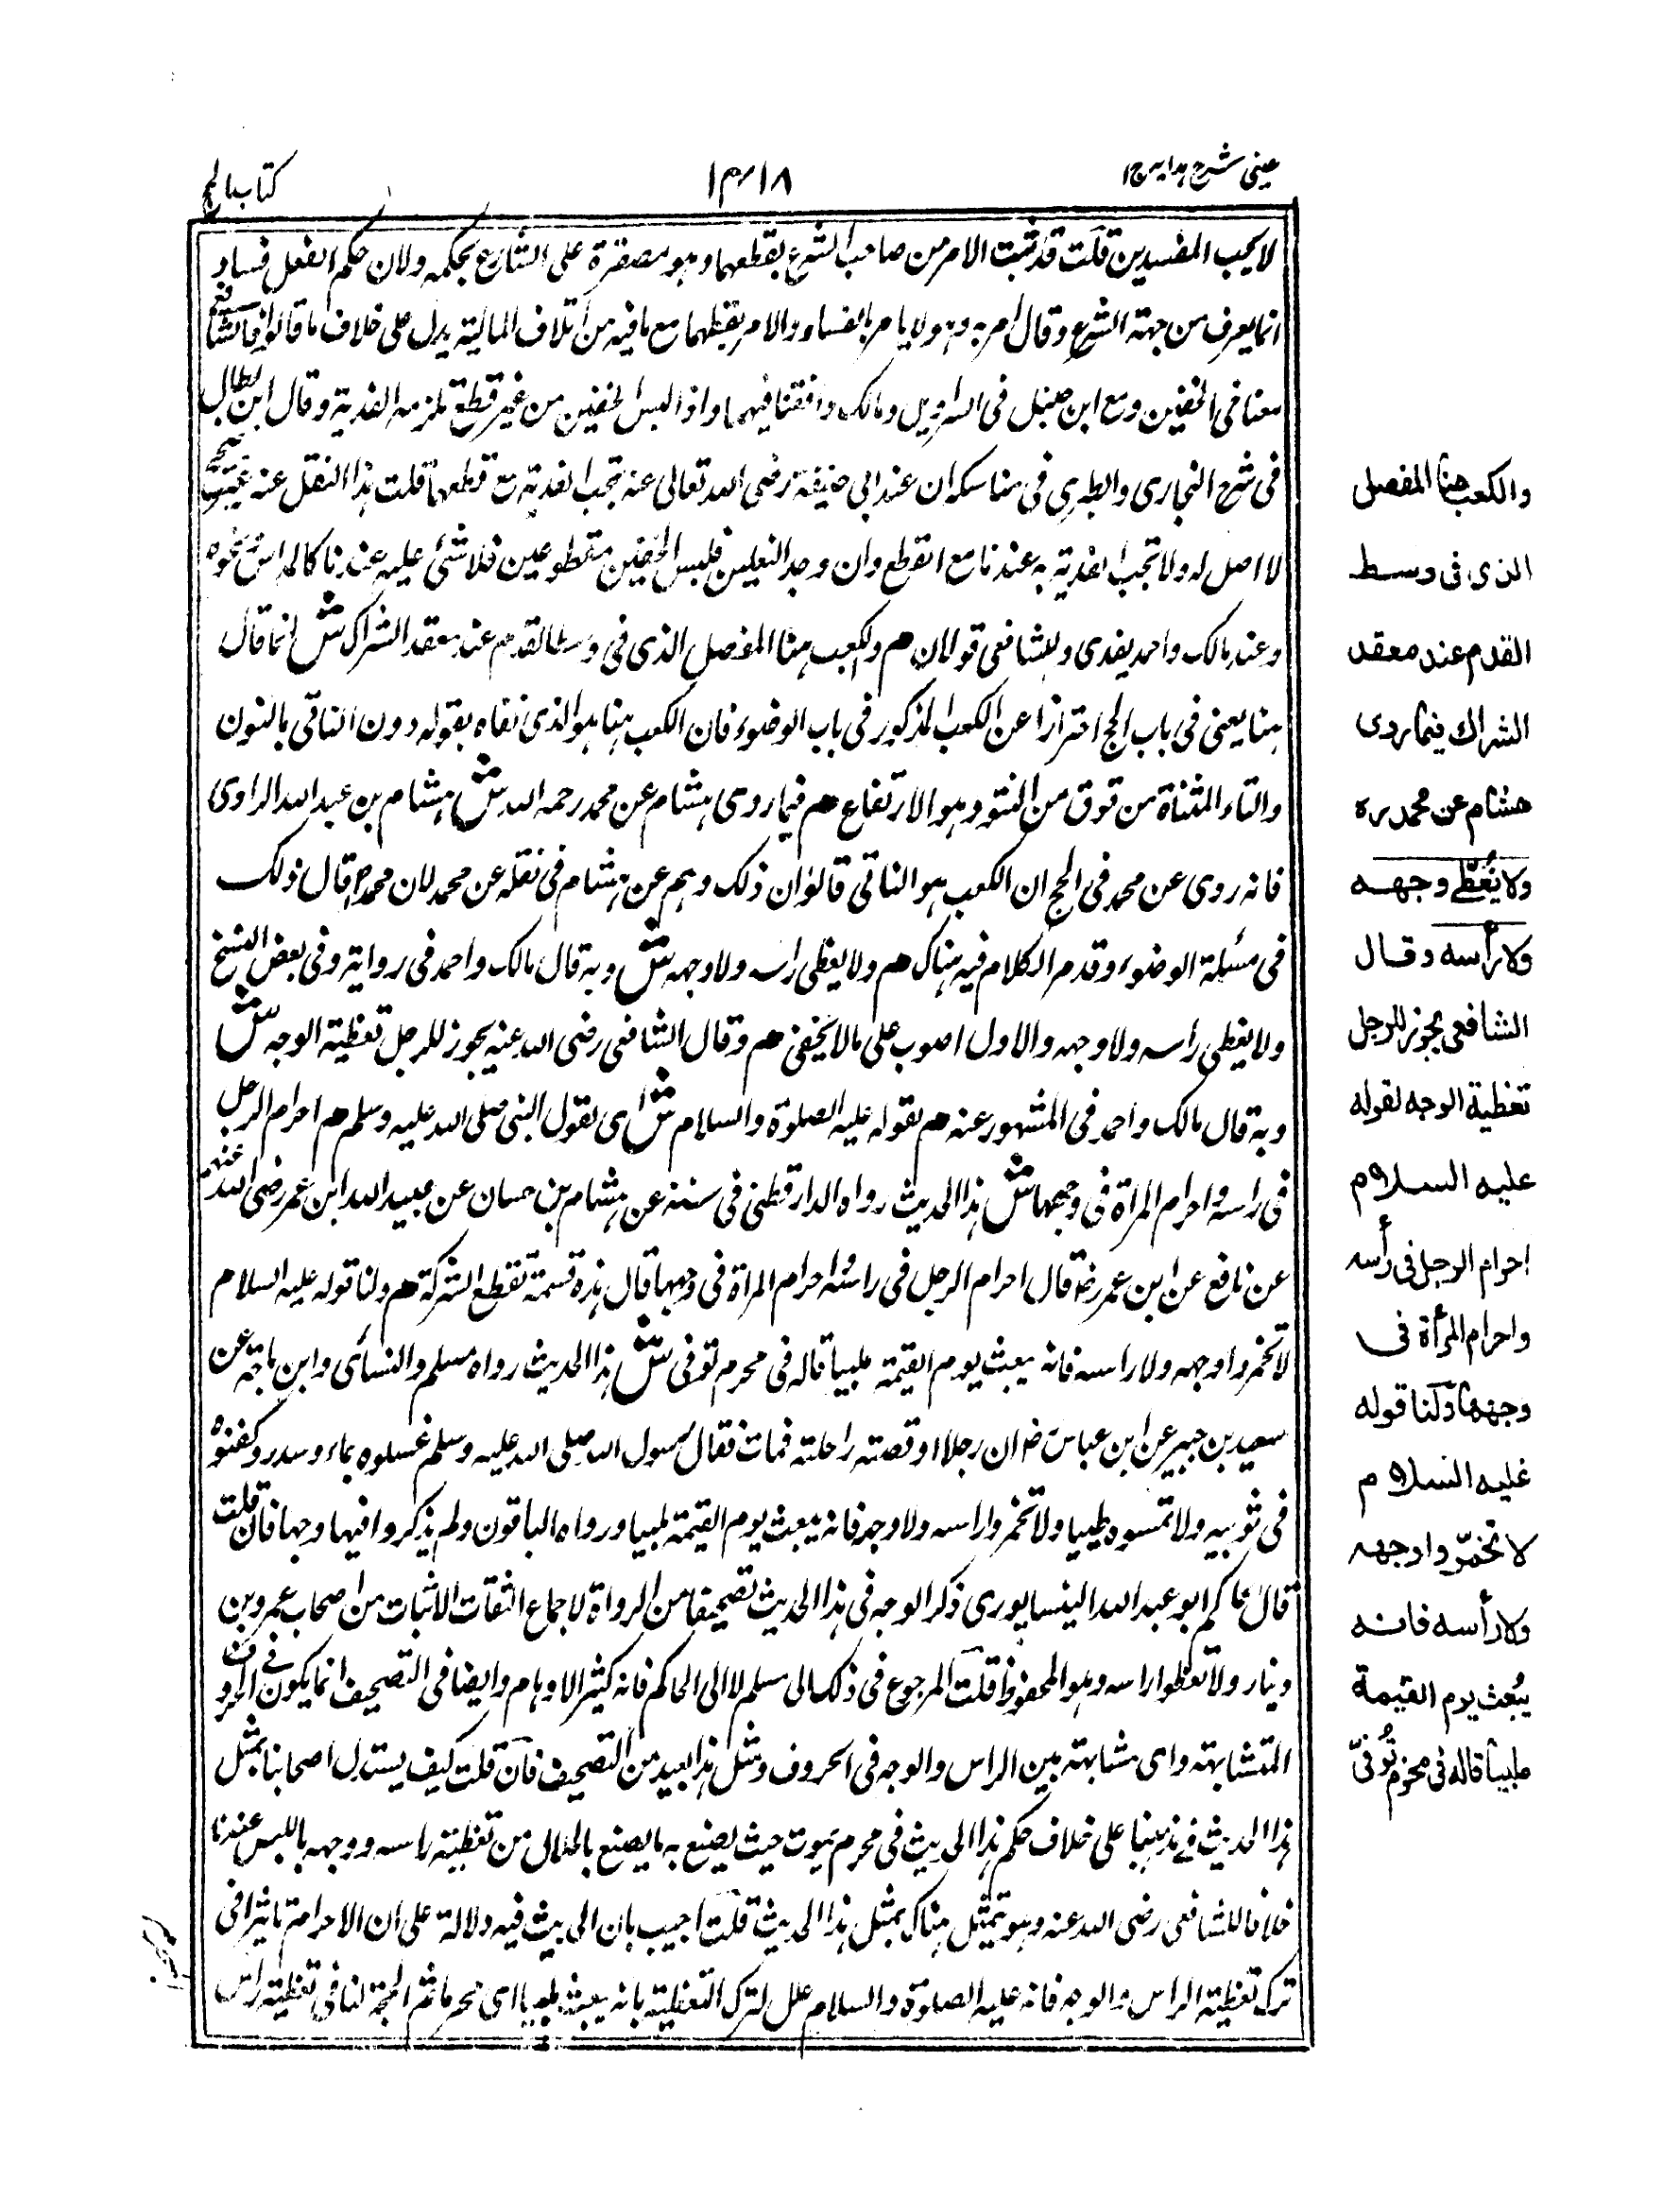 عینی شرح ہدایہ ج۱
۱۴۱۸
کتاب الحج
لا یحب المفسدین قلت قد ثبت الامر من صاحب الشرع بقطعهما وهو على الشارع بحکمه ولان حکم الفعل فساد
انما یعرف من جهة الشرع وقال امر به وهو لا یامر بالفساد والامر بقطعهما مع ما فیه من اتلاف المالیة یدل على خلاف ما قالوا فالشافعی
معنا فی الخفین ومع ابن حنبل فی السراویل ومالک وافقنا فیهما واذا لبس الخفین من غیر قطع تلزمه الفدیة وقال ابن بطال
فی شرح البخاری والطبری فی مناسکه ان عند ابی حنیفة رضی الله تعالى عنه تجب الفدیة مع قطعهما قلت هذا النقل عنه غیر صحیح
لا اصل له ولا تجب الفدیة به عندنا مع القطع وان وجد النعلین فلبس الخفین مقطوعین فلا شئ علیه عندنا کالمداس ونحوه
وعند مالک واحمد یفدی وللشافعی قولان هم والکعب هنا المفصل الذی فی وسط القدم عند معقد الشراک ش انما قال
هنا یعنی فی باب الحج احترازا عن الکعب المذکور فی باب الوضوء فان الکعب هنا هو الذی نفاه بقوله دون الناتی بالنون
والتاء المثناة من فوق من النتو وهو الارتفاع هم فیما روى هشام عن محمد رحمه الله ش هشام بن عبد الله الراوی
فانه روی عن محمد فی الحج ان الکعب هو الناتی قالوا ان ذلک وهم عن هشام فی نقله عن محمد لان محمدا قال ذلک
فی مسئلة الوضوء وقد مر الکلام فیه هناک هم ولا یغطی راسه ولا وجهه ش وبه قال مالک واحمد فی روایة وفی بعض النسخ
ولا یغطی راسه ولا وجهه والاول اصوب على ما لا یخفى هم وقال الشافعی رضی الله عنه یجوز للرجل تغطیة الوجه ش
وبه قال مالک واحمد فی المشهور عنه هم لقوله علیه الصلوة والسلام ش ای لقول النبی صلى الله علیه وسلم هم احرام الرجل
فی راسه واحرام المراة فی وجهها ش هذا الحدیث رواه الدارقطنی فی سننه عن هشام بن حسان عن عبید الله ابن عمر رضی الله عنهم
عن نافع عن ابن عمر رضه قال احرام الرجل فی راسه واحرام المراة فی وجهها قال هذه قسمة تقطع الشرکة هم ولنا قوله علیه السلام
لا تخمروا وجهه ولا راسه فانه یبعث یوم القیمة ملبیا قاله فی محرم توفى ش هذا الحدیث رواه مسلم والنسائی وابن ماجة عن
سعید بن جبیر عن ابن عباس رضه ان رجلا اوقصته راحلته فمات فقال رسول الله صلى الله علیه وسلم غسلوه بماء وسدر وکفنوه
فی ثوبیه ولا تمسوه طیبا ولا تخمروا راسه ولا وجهه فانه یبعث یوم القیمة ملبیا ورواه الباقون ولم یذکروا فیها وجها فان قلت
قال الحاکم ابو عبد الله النیسابوری ذکر الوجه فی هذا الحدیث تصحیفا من الرواة لاجماع الثقات الاثبات من اصحاب عمرو بن
دینار ولا تغطوا راسه وهو المحفوظ قلت المرجوع فی ذلک الى مسلم لا الى الحاکم فانه کثیر الاوهام وایضا فی التصحیف انما یکون فی الحروف
المتشابهة وای مشابهة بین الراس والوجه فی الحروف ومثل هذا بعید من التصحیف فان قلت کیف یستدل اصحابنا بمثل
هذا الحدیث فی مذهبنا على خلاف حکم هذا الحدیث فی محرم یموت حیث یصنع به ما یصنع بالحلال من تغطیة راسه ووجهه باللبس عندنا
خلافا للشافعی رضی الله عنه وهو هناک بمثل هذا الحدیث قلت اجیب بان الحدیث فیه دلالة على ان الاحرام تاثیرا فی
ترک تغطیة الراس والوجه فانه علیه الصلوة والسلام علل لترک التغطیة بانه یبعث ملبیا ای محرما ثم الحجة لنا فی تغطیة راس
والکعب هنا المفصل
الذی فی وسط
القدم عند معقد
الشراك فیما روى
هشام عن محمد ره
ولا یُغطّی وجهه
ولا رأسه وقال
الشافعی یجوز للرجل
تغطیة الوجه لقوله
علیه السلام
احرام الرجل فی رأسه
واحرام المرأة فی
وجهها ولنا قوله
علیه السلام
لا تخمّروا وجهه
ولا رأسه فانه
یُبعث یوم القیمة
ملبیاً قاله فی محرم تُوفّی